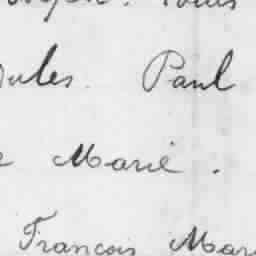 Jules. Paul
Marie.
François Mar